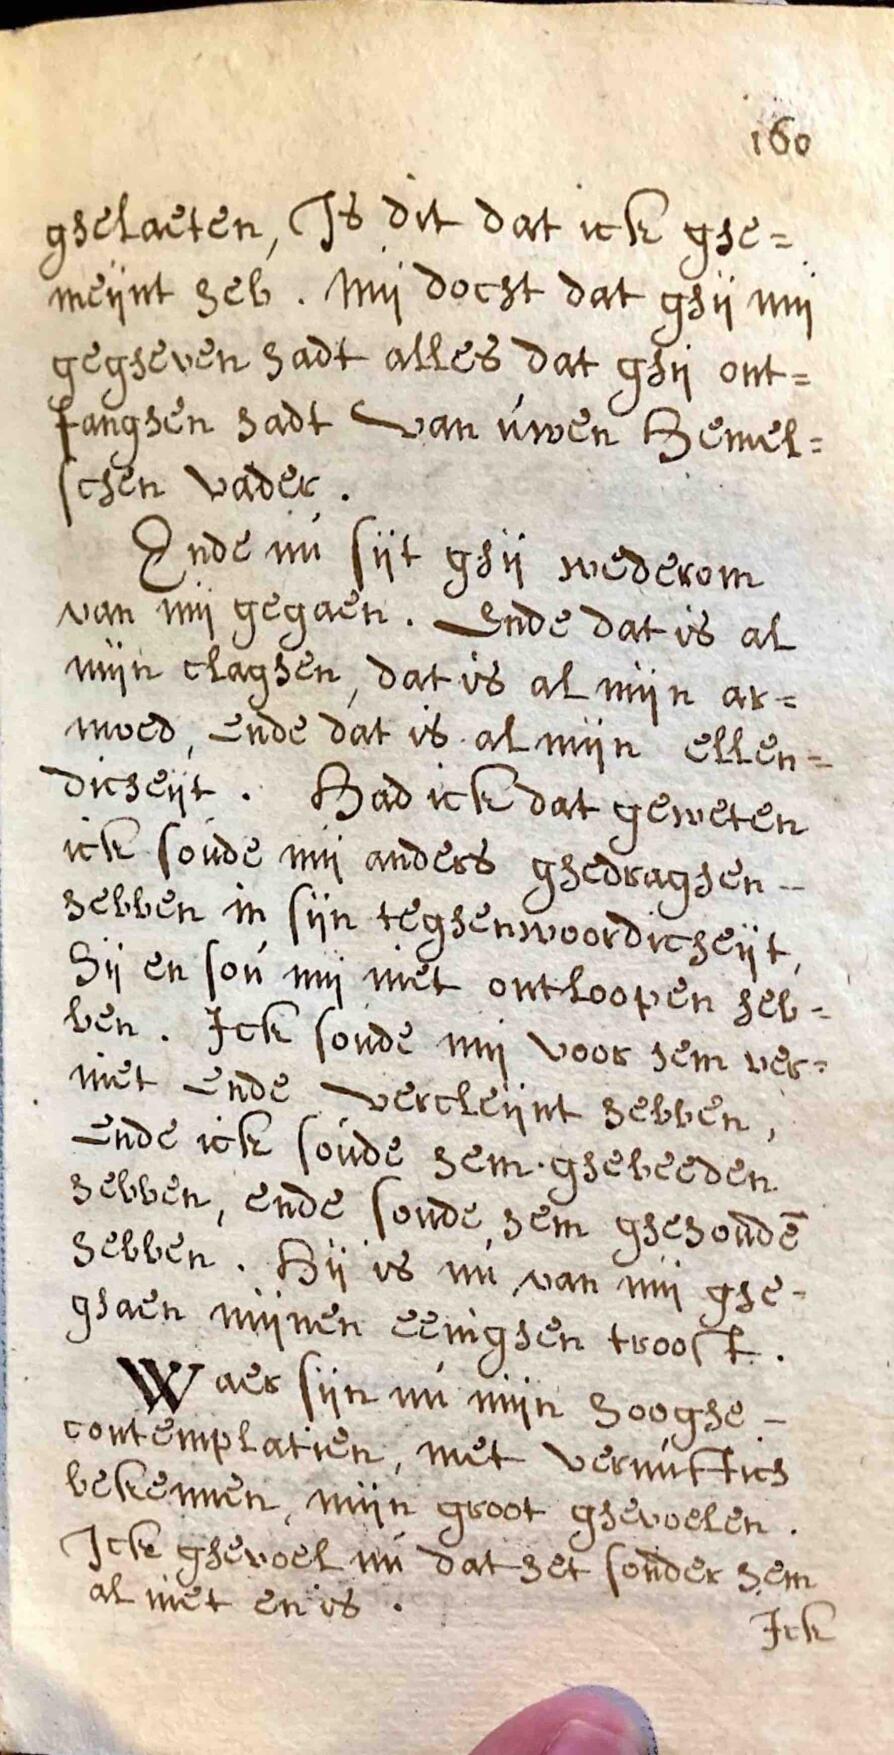 160
ghelaeten, Is dit dat ick ghe=
meijnt heb. Mij docht dat ghij mij
gegheven hadt alles dat ghij ont=
fanghen hadt van úwen Hemel=
schen vader.
Ende nú sijt ghij wederom
van mij gegaen. Ende dat is al
mijn claghen, dat is al mijn ar=
moed, ende dat is al mijn ellen=
dicheijt. Had ick dat geweten
ick soúde mij anders ghedraghen –
hebben in sijn teghenwoordicheijt,
Hij en soú mij niet ontloopen heb=
ben. Ick soude mij voor hem ver=
niet ende vercleijnt hebben,
Ende ick soúde hem ghebeeden
hebben, ende soude hem ghehoudē
hebben. Hij is nú van mij ghe=
ghaen mijnen eenighen troost.
Waer sijn nú mijn hooghe –
contemplatien, met vernúftich
bekennen, mijn groot ghevoelen.
Ick ghevoel nú dat het sonder hem
al niet en is.
Ick